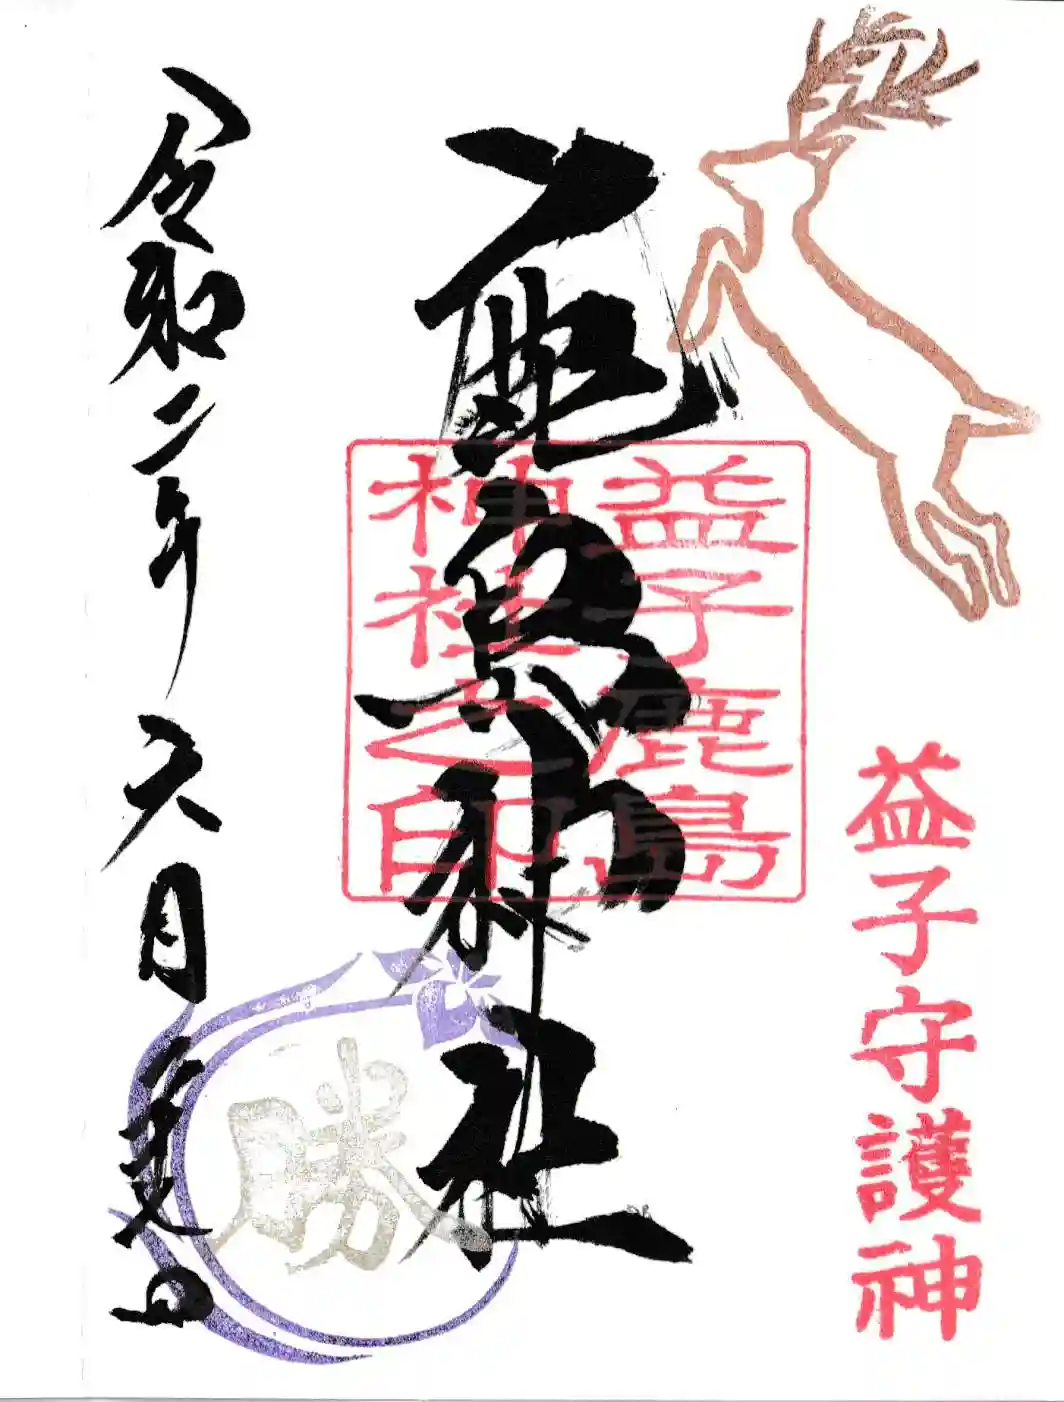 益子守護神
鹿島神社
益子鹿島
神社之印
令和二年六月日
勝